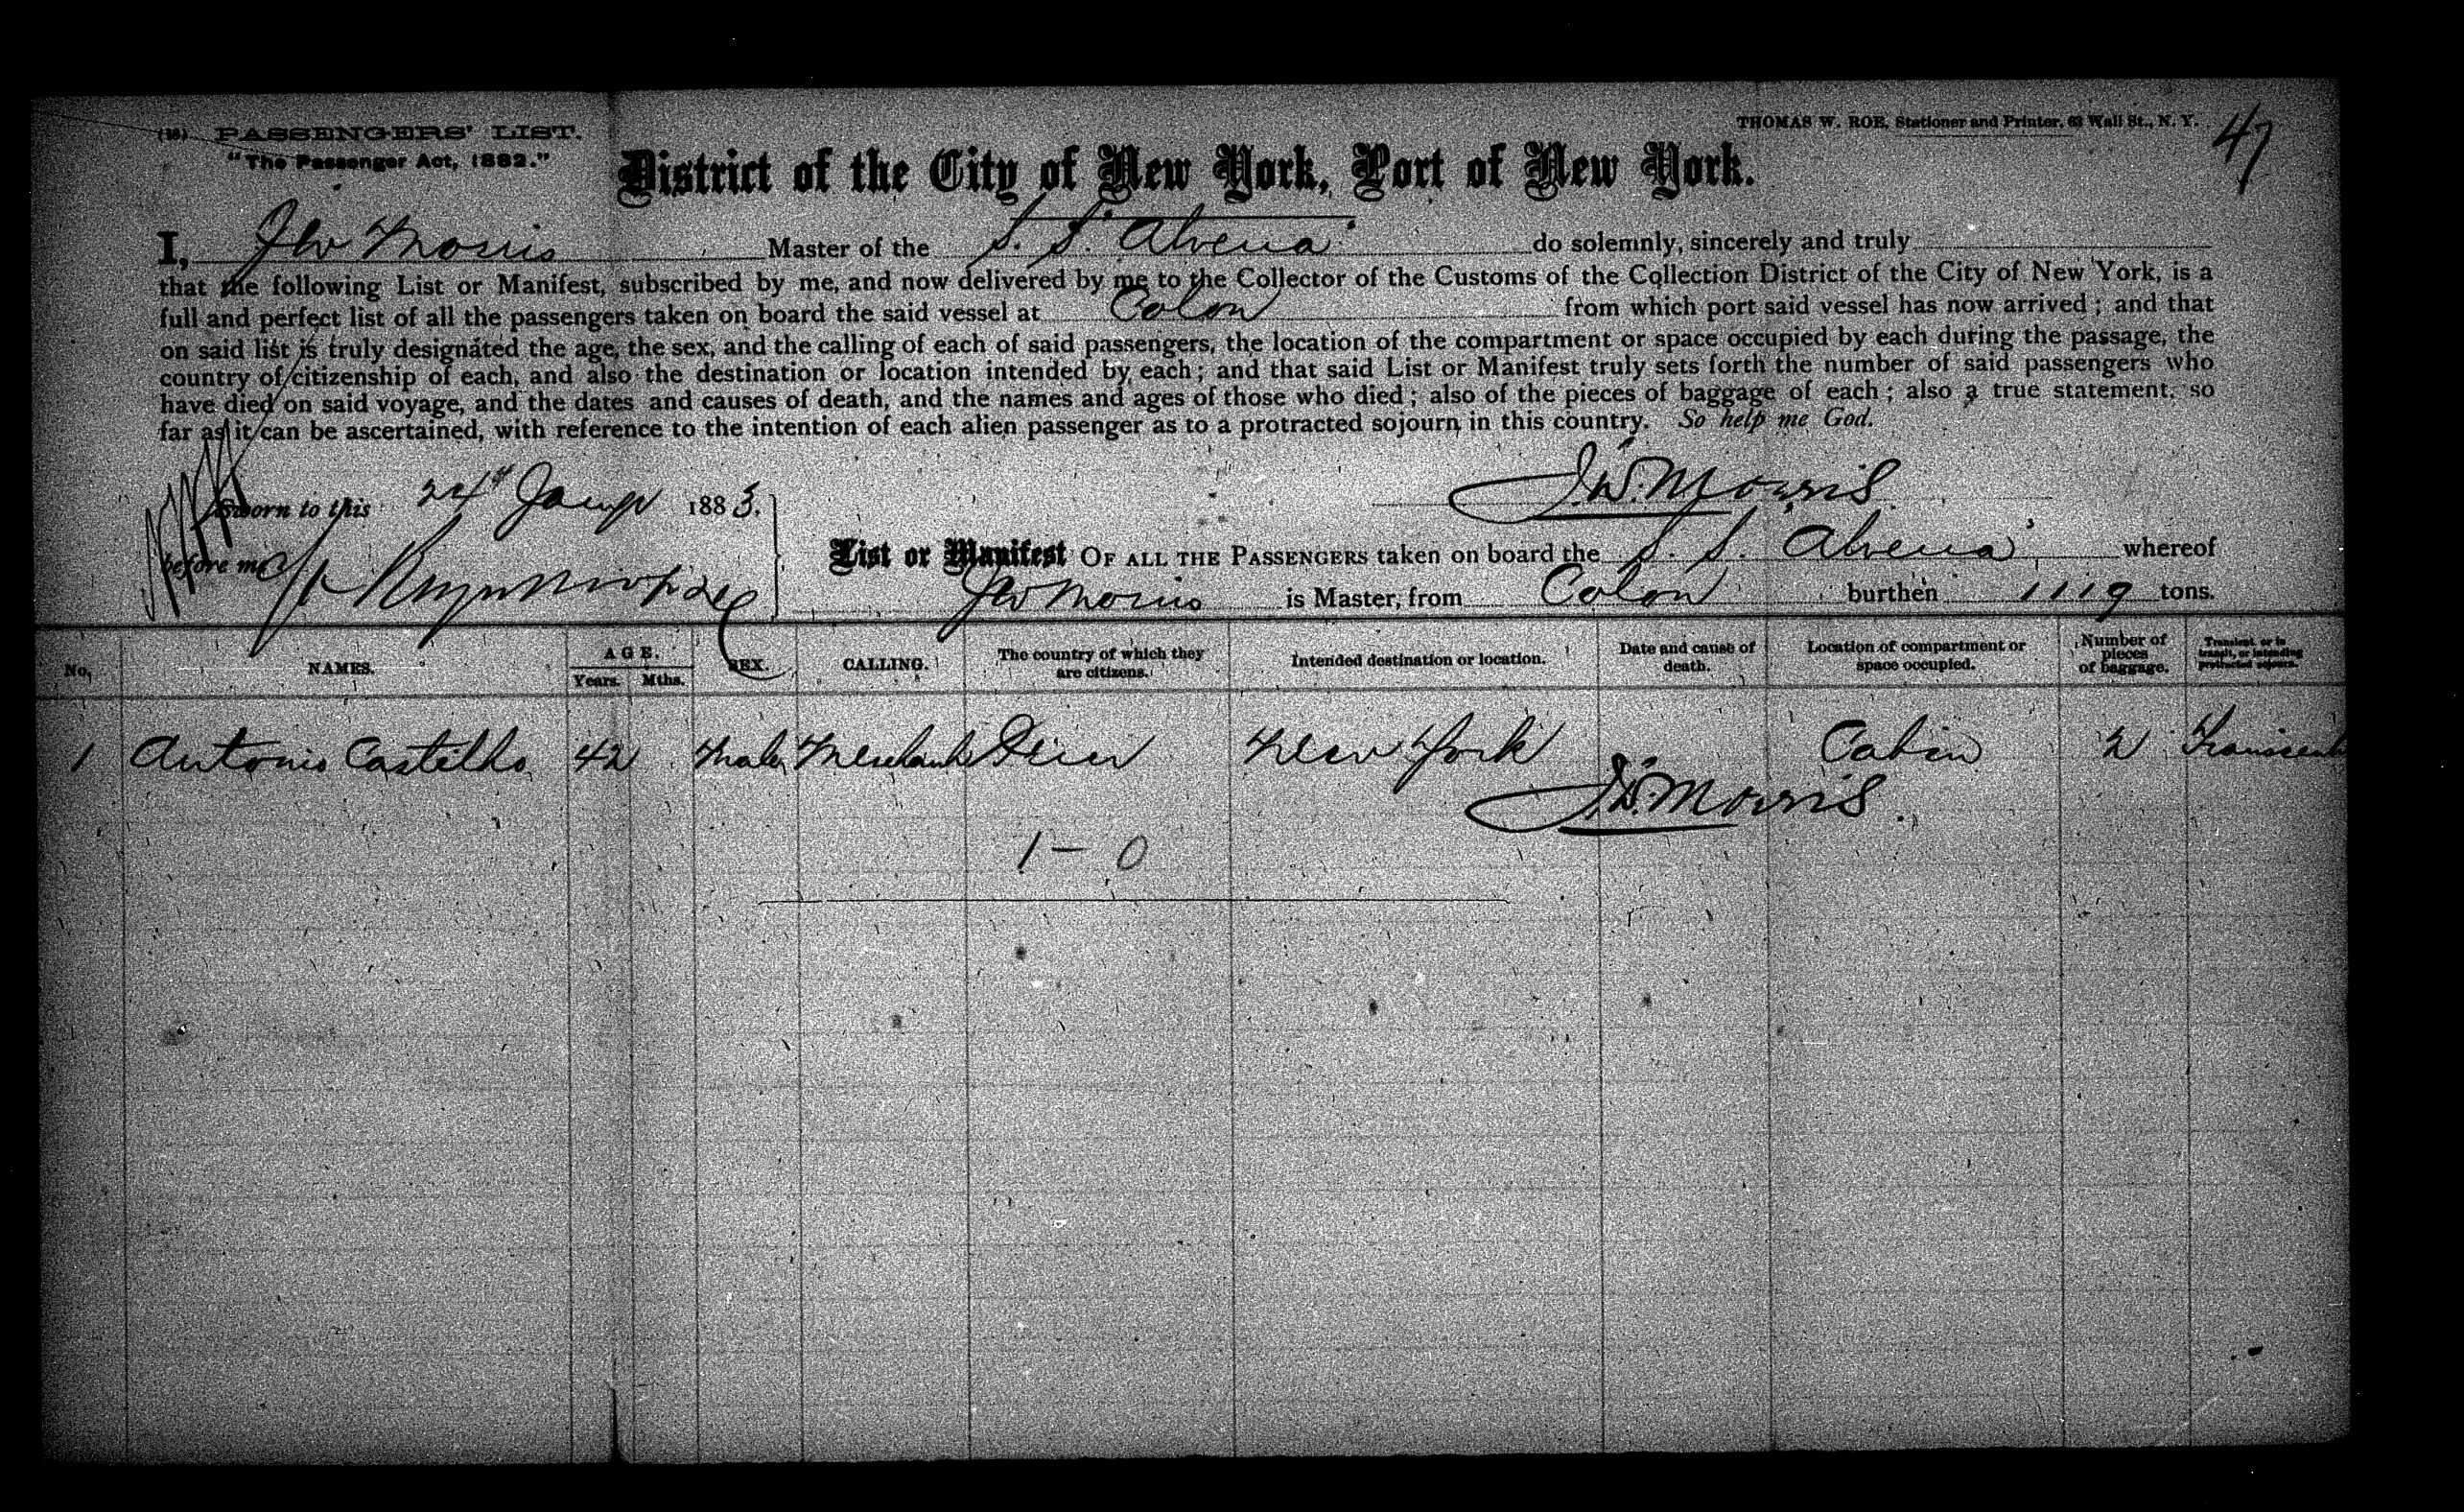 (18) PASSENGERS' LIST.
"The Passenger Act, 1882."
THOMAS W. ROE, Stationer and Printer, 63 Wall St., N. Y.
47
District of the City of New York, Port of New York.
I, JW Morris Master of the S. S. "Alvena" do solemnly, sincerely and truly
that the following List or Manifest, subscribed by me, and now delivered by me to the Collector of the Customs of the Collection District of the City of New York, is a
full and perfect list of all the passengers taken on board the said vessel at Colon from which port said vessel has now arrived; and that
on said list is truly designated the age, the sex, and the calling of each of said passengers, the location of the compartment or space occupied by each during the passage, the
country of citizenship of each, and also the destination or location intended by each; and that said List or Manifest truly sets forth the number of said passengers who
have died on said voyage, and the dates and causes of death, and the names and ages of those who died; also of the pieces of baggage of each; also a true statement, so
far as it can be ascertained, with reference to the intention of each alien passenger as to a protracted sojourn in this country. So help me God.
Sworn to this 24th Jany 1883.
J.W. Morris
before me
List or Manifest OF ALL THE PASSENGERS taken on board the S. S. Alvena whereof
JW Morris is Master, from Colon burthen 1119 tons.
No. NAMES. AGE. Years. Mths. SEX. CALLING. The country of which they are citizens. Intended destination or location. Date and cause of death. Location of compartment or space occupied. Number of pieces of baggage. Transient, or in transit, or intending protracted sojourn.
1 Antonio Castello 42 Male Merchant New York Cabin 2 Transient
J.W. Morris
1 — 0